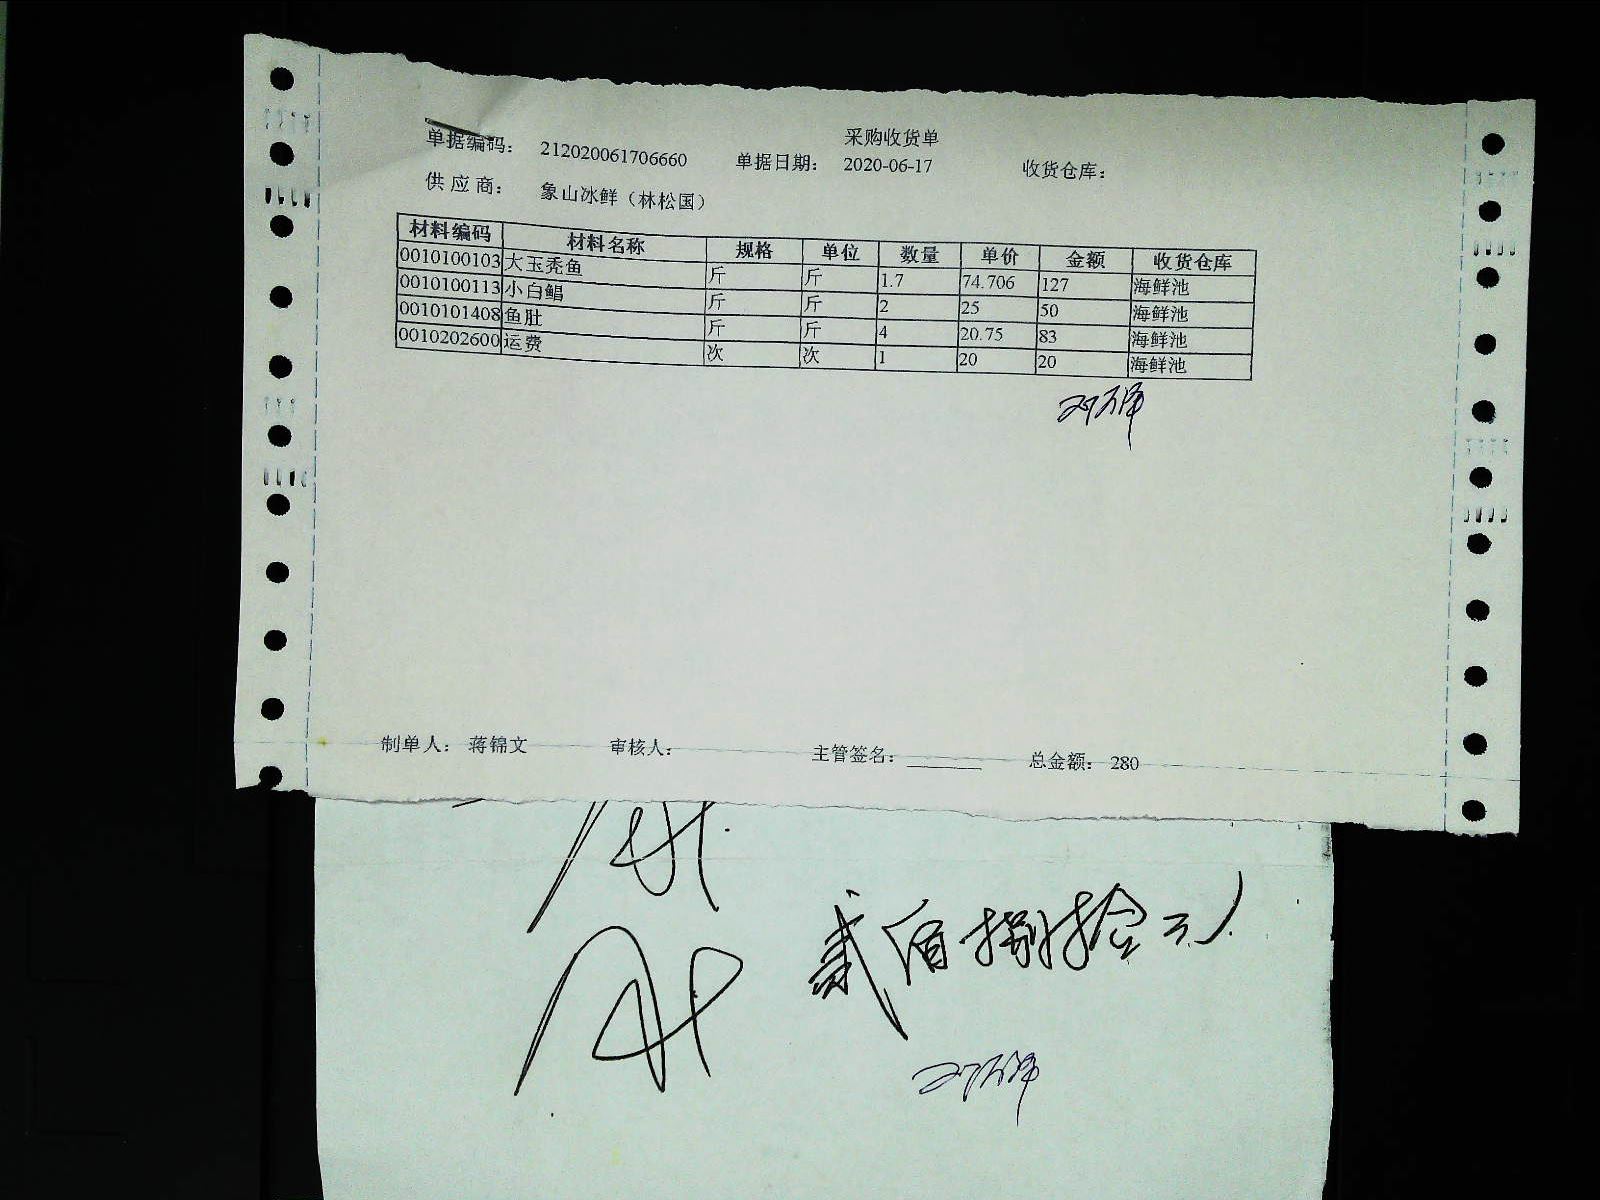 采购收货单
单据编码： 212020061706660 单据日期： 2020-06-17 收货仓库：
供应商： 象山冰鲜（林松国）
材料编码 材料名称 规格 单位 数量 单价 金额 收货仓库
0010100103 大玉秃鱼 斤 斤 1.7 74.706 127 海鲜池
0010100113 小白鲳 斤 斤 2 25 50 海鲜池
0010101408 鱼肚 斤 斤 4 20.75 83 海鲜池
0010202600 运费 次 次 1 20 20 海鲜池
制单人： 蒋锦文 审核人： 主管签名： 总金额： 280
贰佰捌拾元